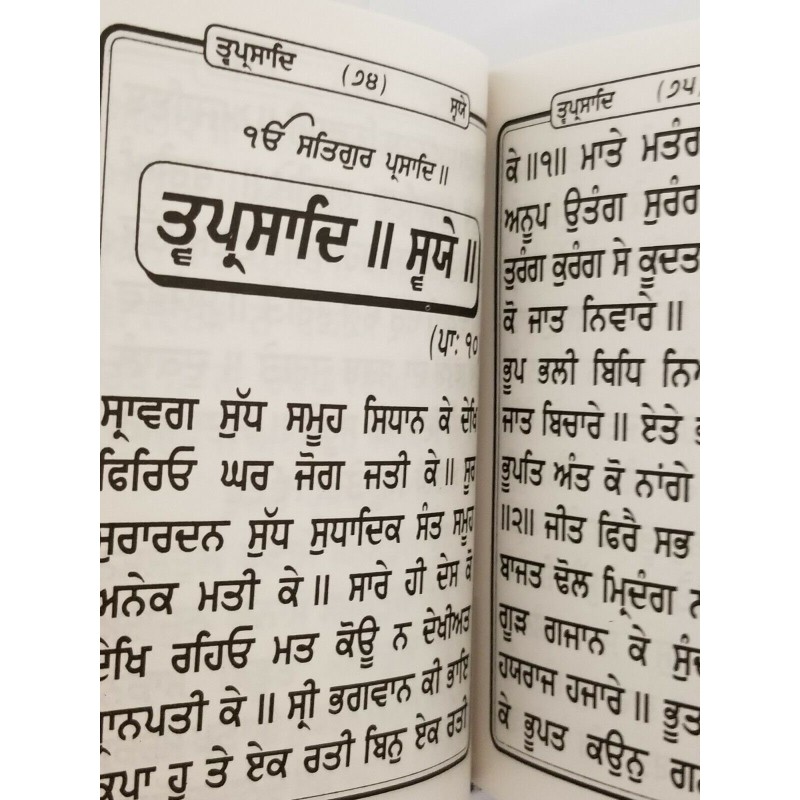 ਤ੍ਵਪ੍ਰਸਾਦਿ (੭੪) ਸ੍ਵਯੇ
ੴ ਸਤਿਗੁਰ ਪ੍ਰਸਾਦਿ॥
ਤ੍ਵਪ੍ਰਸਾਦਿ ॥ ਸ੍ਵਯੇ ॥
(ਪਾ: ੧੦
ਸ੍ਰਾਵਗ ਸੁੱਧ ਸਮੂਹ ਸਿਧਾਨ ਕੇ ਦੇਖਿ
ਫਿਰਿਓ ਘਰ ਜੋਗ ਜਤੀ ਕੇ॥ ਸੂਰ
ਸੁਰਾਰਦਨ ਸੁੱਧ ਸੁਧਾਦਿਕ ਸੰਤ ਸਮੂਹ
ਅਨੇਕ ਮਤੀ ਕੇ॥ ਸਾਰੇ ਹੀ ਦੇਸ ਕੋ
ਦੇਖਿ ਰਹਿਓ ਮਤ ਕੋਊ ਨ ਦੇਖੀਅਤ
ਪ੍ਰਾਨਪਤੀ ਕੇ॥ ਸ੍ਰੀ ਭਗਵਾਨ ਕੀ ਭਾਇ
ਕ੍ਰਿਪਾ ਹੂ ਤੇ ਏਕ ਰਤੀ ਬਿਨੁ ਏਕ ਰਤੀ
ਤ੍ਵਪ੍ਰਸਾਦਿ (੭੫)
ਕੇ॥੧॥ ਮਾਤੇ ਮਤੰਗ
ਅਨੂਪ ਉਤੰਗ ਸੁਰੰਗ
ਤੁਰੰਗ ਕੁਰੰਗ ਸੇ ਕੂਦਤ
ਕੋ ਜਾਤ ਨਿਵਾਰੇ॥
ਭੂਪ ਭਲੀ ਬਿਧਿ ਨਿ
ਜਾਤ ਬਿਚਾਰੇ॥ ਏਤੇ
ਭੂਪਤਿ ਅੰਤ ਕੋ ਨਾਂਗੇ
॥੨॥ ਜੀਤ ਫਿਰੈ ਸਭ
ਬਾਜਤ ਢੋਲ ਮ੍ਰਿਦੰਗ ਨ
ਗੂੜ ਗਜਾਨ ਕੇ ਸੁੰਦ
ਹਯਰਾਜ ਹਜਾਰੇ॥ ਭੂਤ
ਕੇ ਭੂਪਤ ਕਉਨੁ ਗਨ